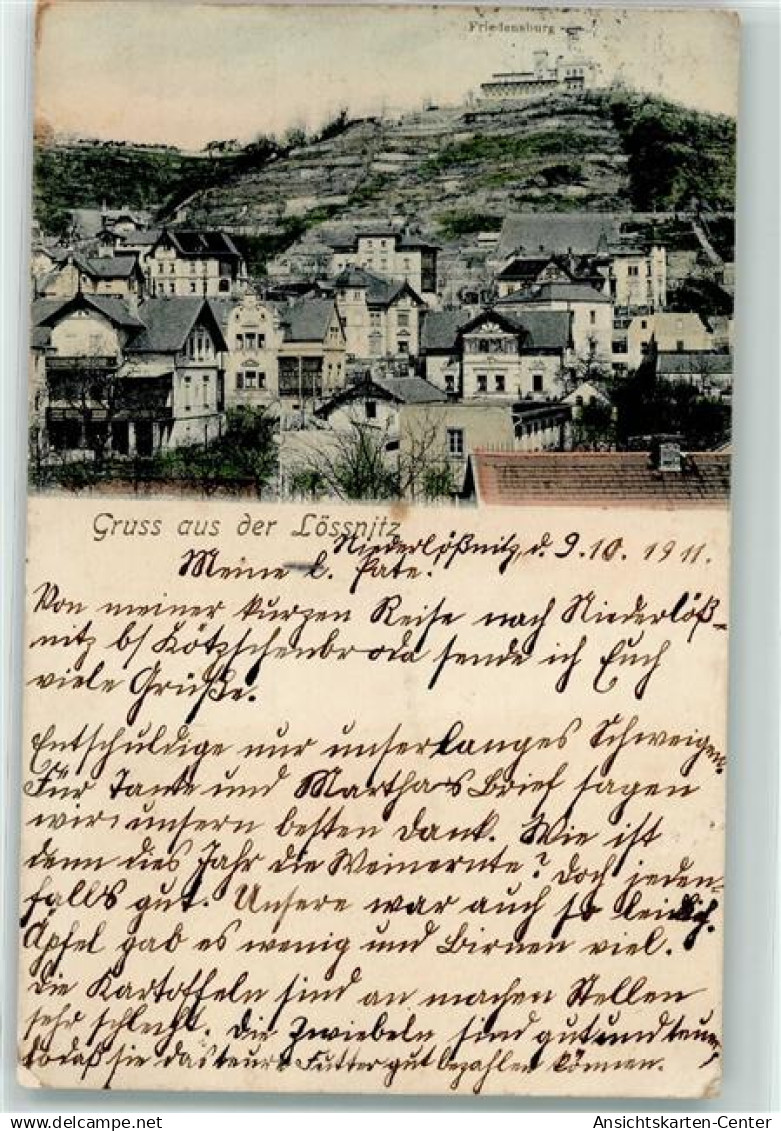 Friedensburg
Gruss aus der Lössnitz
Niederlößnitz, d. 9.10.1911.
Meine l. Pate.
Von meiner kurzen Reise nach Niederlöß-
nitz b/ Kötzschenbroda sende ich Euch
viele Grüße.
Entschuldige nur unser langes Schweigen.
Für Tante und Martha's Brief sagen
wir unsern besten Dank. Wie ist
denn dies Jahr die Weinernte? Doch jeden-
falls gut. Unsere war auch so leidlich.
Äpfel gab es wenig und Birnen viel.
Die Kartoffeln sind an machen Stellen
sehr schlecht. Die Zwiebeln sind gut und teuer
sodaß sie das teure Futter gut bezahlen können.
Ansichtskarten-Center